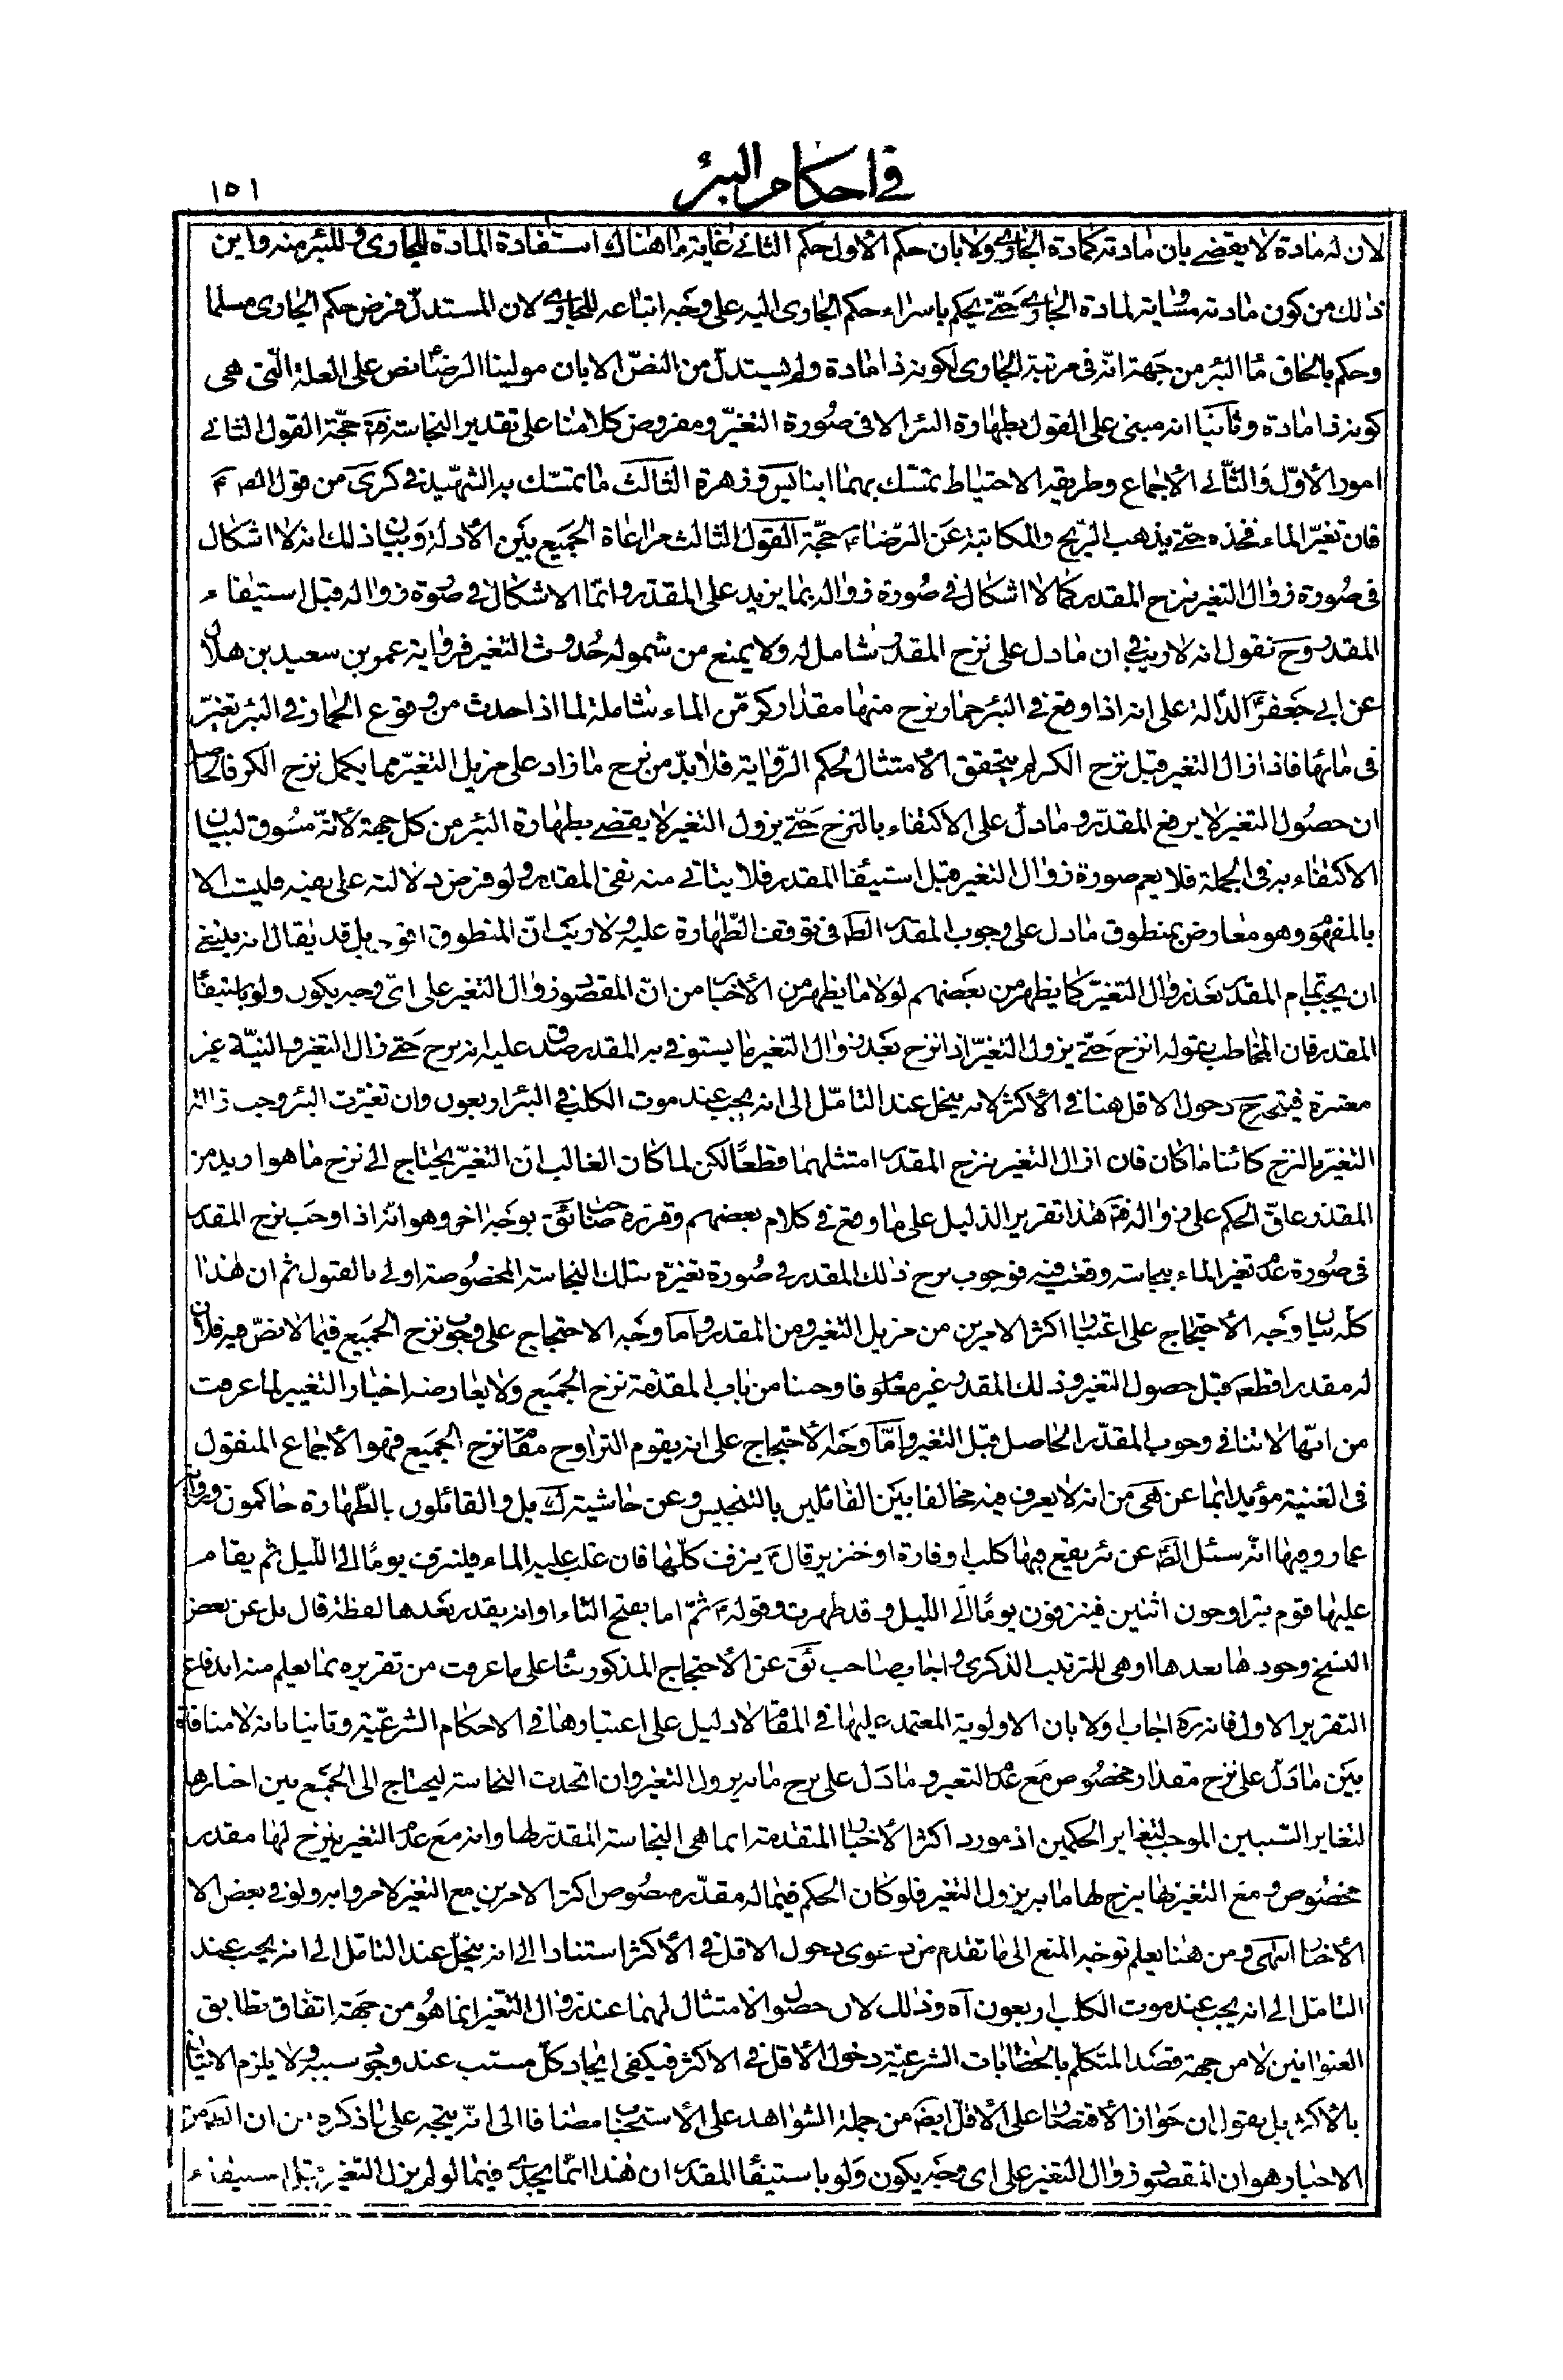 في احكام البئر
١٥١
لان له مادة لا يقضى بان مادته كمادة الجارى ولا بان حكم الأول حكم الثانى غاية ما هناك استفادة المادة للجارى وللبئر منه واين
ذلك من كون مادته مشابهة لمادة الجارى حتى يحكم باسراء حكم الجارى اليه على وجه اتباعه للجارى لان المستدل فرض حكم الجارى مسلما
وحكم بالحاق ماء البئر من جهة انه فى مرتبة الجارى لكونه ذا مادة ولم يستدل من النص الا بان مولينا الرضا نص على العلة التى هى
كونه ذا مادة وثانيا انه مبنى على القول بطهارة البئر الا فى صورة التغير ومفروض كلامنا على تقدير النجاسة حجة القول الثانى
امور الأول والثانى الأجماع وطريقة الاحتياط تمسك بهما ابنا ادريس وزهرة الثالث ما تمسك به الشهيد فى كرى من قول الص ع
فان تغير الماء فخذه حتى يذهب الريح والمكاتبة عن الرضا ع حجة القول الثالث مراعاة الجميع بين الأدلة وبيان ذلك انه لا اشكال
فى صورة زوال التغير بنزح المقدر كما لا اشكال فى صورة زواله بما يزيد على المقدر وانما الاشكال فى صورة زواله قبل استيفاء
المقدر وح نقول انه لا ريب فى ان ما دل على نزح المقدر شامل له ولا يمنع من شموله حدوث التغير فرواية عمرو بن سعيد بن هلال
عن ابى جعفر ع الدالة على انه اذا وقع فى البئر حمار نزح منها مقدار كر من الماء شاملة لما اذا حدث من وقوع الحمار فى البئر تغير
فى مائها فاذا زال التغير قبل نزح الكر لم يتحقق الأمتثال لحكم الرواية فلا بد من نزح ما زاد على مزيل التغير مما يكمل نزح الكر فالحاصل
ان حصول التغير لا يرفع المقدر وما دل على الاكتفاء بالنزح حتى يزول التغير لا يقضى بطهارة البئر من كل جهة لأنه مسوق لبيان
الاكتفاء به فى الجملة فلا يعم صورة زوال التغير قبل استيفاء المقدر فلا يتاتى منه نفى المقدر ولو فرض دلالته على نفيه فليست الا
بالمفهوم وهو معارض بمنطوق ما دل على وجوب المقدر الظ فى توقف الطهارة عليه ولا ريب ان المنطوق اقوى بل قد يقال انه ينبغى
ان يجب تمام المقدر بعد زوال التغير كما يظهر من بعضهم لولا ما يظهر من الأخبار من ان المقصود زوال التغير على اى وجه يكون ولو باستيفاء
المقدر فان المخاطب بقوله انزح حتى يزول التغير اذا نزح بعد زوال التغير ما يستوفى به المقدر صدق عليه انه نزح حتى زال التغير والنية غير
معتبرة فيتجه ح دخول الاقل هنا فى الأكثر لانه ينحل عند التامل الى انه يجب عند موت الكلب فى البئر اربعون وان تغيرت البئر وجب ازالة
التغير بالنزح كائنا ما كان فان ازال التغير بنزح المقدر امتثلهما قطعا لكن لما كان الغالب ان التغير يحتاج الى نزح ما هو ازيد من
المقدر علق الحكم على زواله هذا تقرير الدليل على ما وقع فى كلام بعضهم وقرره صاحب ئق بوجه اخر وهو انه اذا وجب نزح المقدر
فى صورة عدم تغير الماء بنجاسة وقعت فيه فوجوب نزح ذلك المقدر فى صورة تغيره بتلك النجاسة المخصوصة اولى بالقبول ثم ان هذا
كله بيان وجه الأحتجاج على اعتبار اكثر الامرين من مزيل التغير ومن المقدر واما وجه الاحتجاج على وجوب نزح الجميع فيما لا نص فيه فلان
له مقدرا قطعا قبل حصول التغير وذلك المقدر غير معلوم فاوجبنا من باب المقدمة نزح الجميع ولا يعارضه اخبار التغيير لما عرفت
من انها لا تنافى وجوب المقدر الحاصل قبل التغير واما وجه الأحتجاج على انه يقوم التراوح مقام نزح الجميع فهو الأجماع المنقول
فى الغنية مؤيدا بما عن هى من انه لا يعرف فيه مخالفا بين القائلين بالتنجيس وعن حاشية ك بل والقائلون بالطهارة حاكمون ورواية
عمار وفيها انه سئل الص ع عن بئر يقع فيها كلب او فارة او خنزير قال ع ينزف كلها فان غلب عليه الماء فلينزف يوما الى الليل ثم يقام
عليها قوم يتراوحون اثنين اثنين فينزفون يوما الى الليل وقد طهرت وقوله ع ثم اما بفتح الثاء او انه يقدر بعدها لفظة قال بل عن بعض
النسخ وجودها بعدها او هى للترتيب الذكرى واجاب صاحب ئق عن الأحتجاج المذكور بناء على ما عرفت من تقريره بما يعلم منه اندفاع
التقرير الاول فانه ره اجاب اولا بان الاولوية المعتمد عليها فى المقام لا دليل على اعتبارها فى الاحكام الشرعية وثانيا بانه لا منافاة
بين ما دل على نزح مقدار مخصوص مع عدم التغير وما دل على نزح ما به يزول التغير وان اتحدت النجاسة ليحتاج الى الجمع بين اخبارها
لتغاير السببين الموجب لتغاير الحكمين اذ مورد اكثر الأخبار المتقدمة انما هى النجاسة المقدر لها وانه مع عدم التغير ينزح لها مقدر
مخصوص ومع التغير بها ينزح لها ما به يزول التغير فلو كان الحكم فيما له مقدر منصوص اكثر الامرين مع التغير لامروا به ولو فى بعض الا
الأخبار انتهى ومن هنا يعلم توجه المنع الى ما تقدم من دعوى دخول الاقل فى الأكثر استنادا الى انه ينحل عند التامل الى انه يجب عند
التامل الى انه يجب عند موت الكلب اربعون آه وذلك لان حصول الامتثال لهما عند زوال التغير انما هو من جهة اتفاق تطابق
العنوانين لا من جهة قصد المتكلم بالخطابات الشرعية دخول الأقل فى الاكثر فيكفى ايجاد كل مسبب عند وجود سببه ولا يلزم الاتيان
بالأكثر بل يقول ان جواز الأقتصار على الأقل ايضا من جملة الشواهد على الأستحباب مضافا الى انه يتجه على ما ذكره من ان الظ من
الاخبار هو ان المقصود زوال التغير على اى وجه يكون ولو باستيفاء المقدر ان هذا انما يجدى فيما لو لم يزل التغير قبل استيفاء